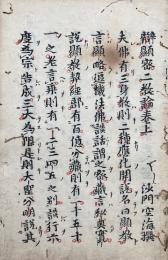 辯顯密二教論卷上
沙門空海撰
夫佛有三身教則二種應化開說名曰顯教
言顯略逗機法佛談話謂之密藏言秘奧實
說顯教契經部有百億分藏則有一十五十
一之差言乘則有一二三四五之別談行六
度為宗告成三大為限是則大聖分明說其